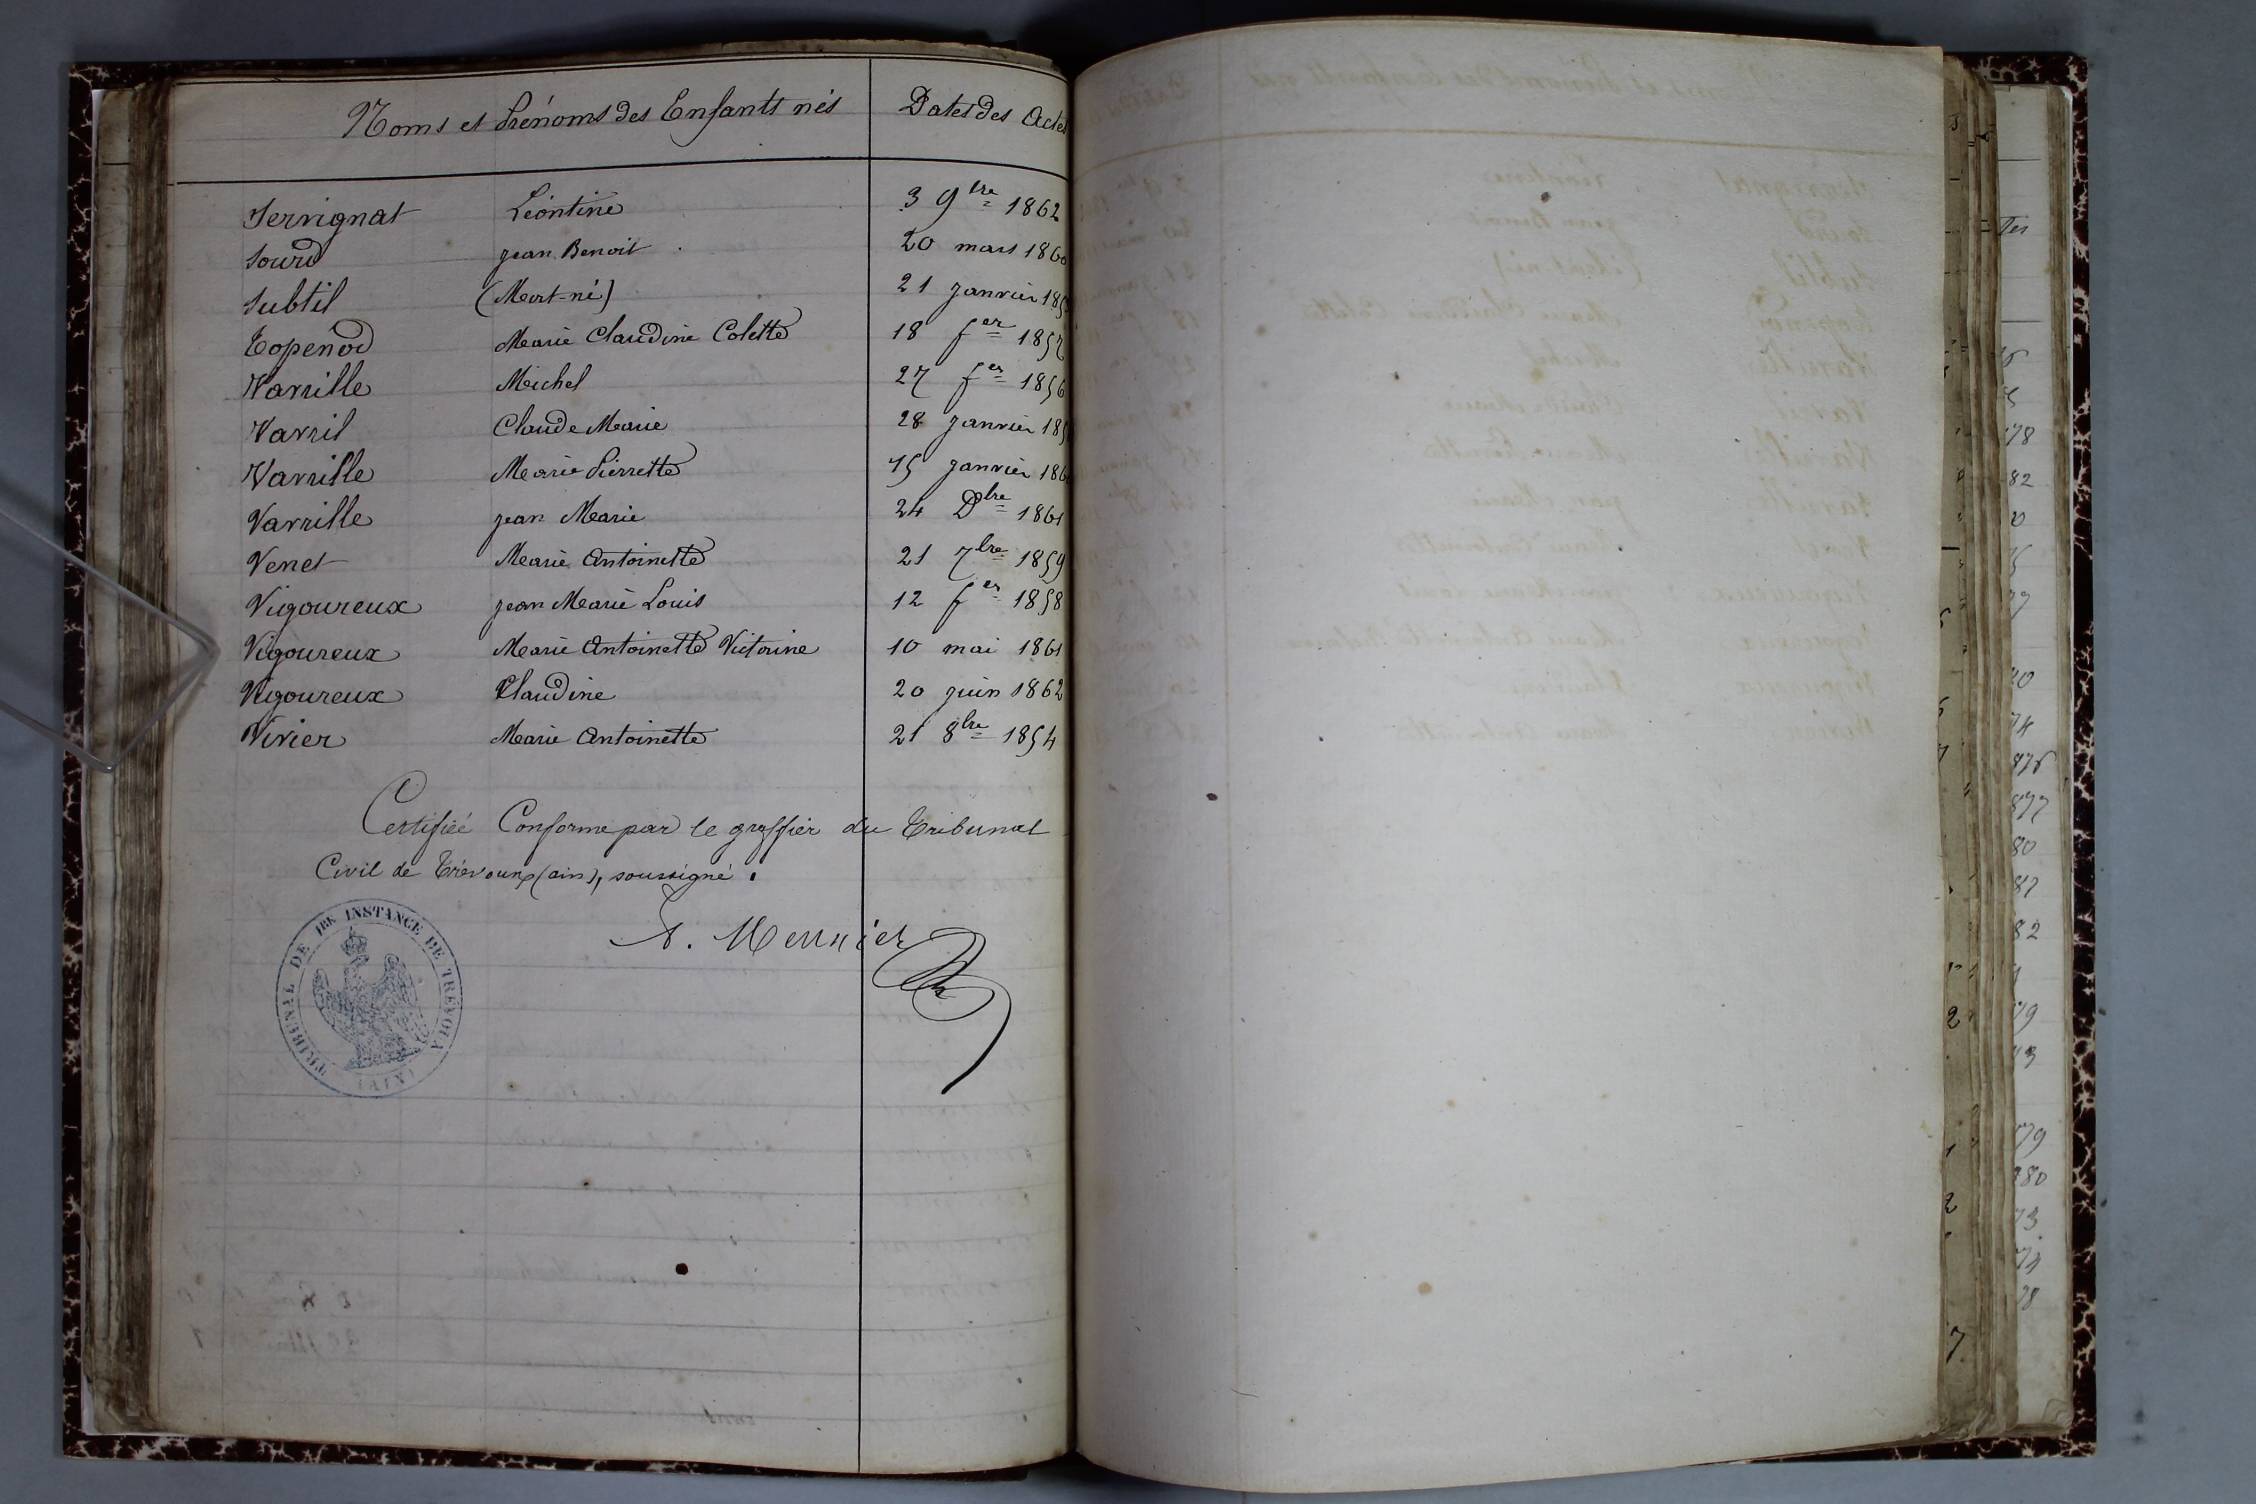 Noms et Prénoms des Enfants nés Dates des Actes
Servignat Léontine 3 9bre 1862
Sourd jean Benoit 20 mars 1860
Subtil (Mort-né) 21 janvier
Topenod Marie Claudine Colette 18 fer 1857
Varrille Michel 27 fer 1856
Varril Claude Marie 28 janvier
Varrille Marie Pierrette 15 janvier
Varrille jean Marie 24 Dbre 1861
Venet Marie Antoinette 21 7bre 1859
Vigoureux jean Marie Louis 12 fer 1858
Vigoureux Marie Antoinette Victorine 10 mai 1861
Vigoureux Claudine 20 juin 1862
Vivier Marie Antoinette 21 8bre 1854
Certifié Conforme par le greffier du Tribunal
Civil de Trévoux (ain), soussigné.
A. Meunier
TRIBUNAL DE 1RE INSTANCE DE TREVOUX
(AIN)